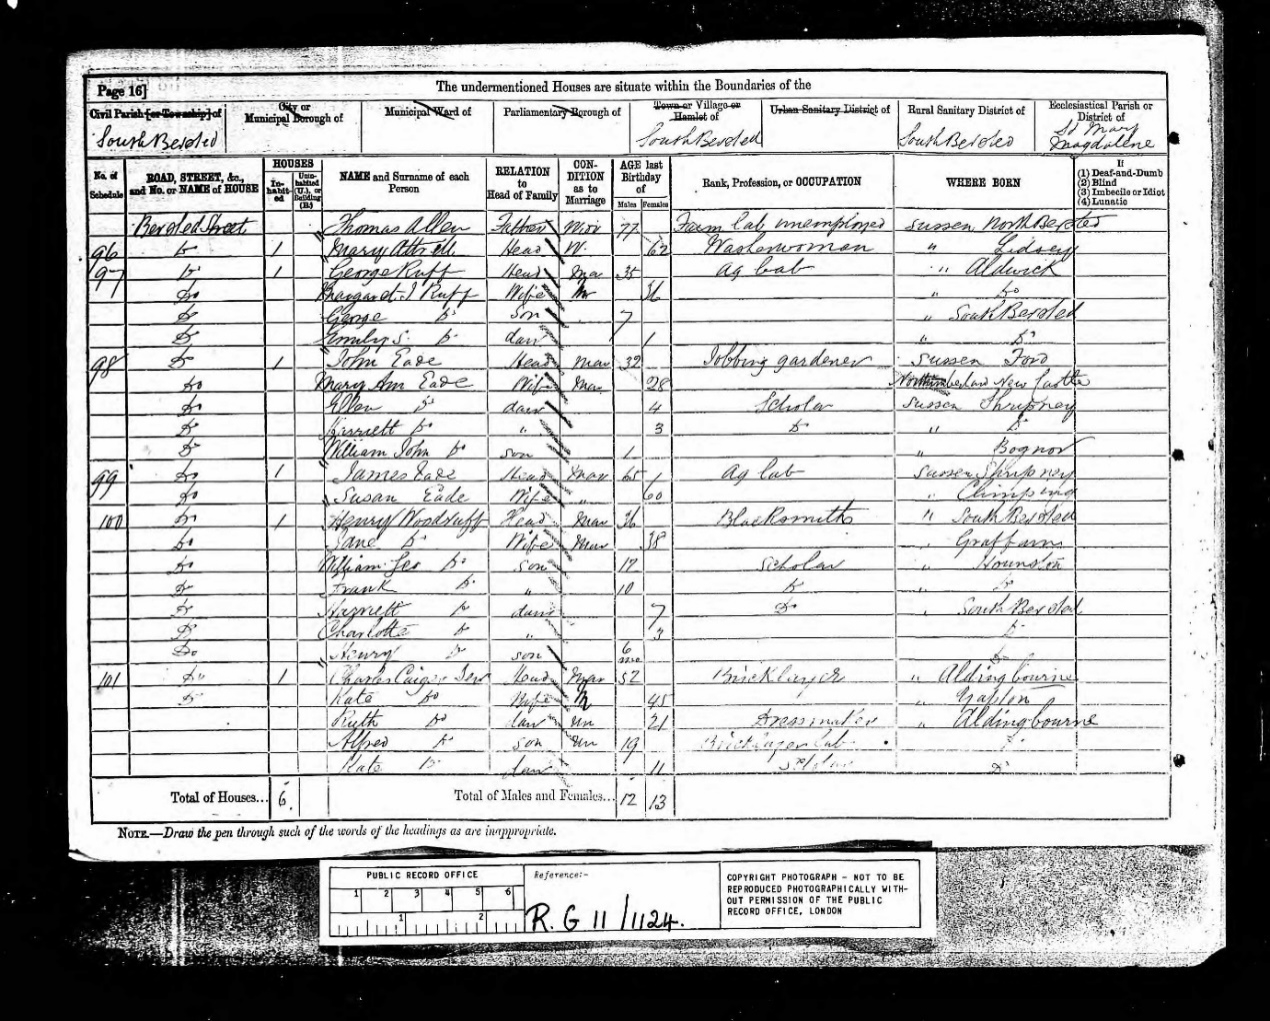 Page 16]
The undermentioned Houses are situate within the Boundaries of the
Civil Parish [or Township] of
City or Municipal Borough of
Municipal Ward of
Parliamentary Borough of
Town or Village or Hamlet of
Urban Sanitary District of
Rural Sanitary District of
Ecclesiastical Parish or District of
South Bersted
South Bersted
South Bersted
St Mary Magdalene
No. of Schedule
ROAD, STREET, &c., and No. or NAME of HOUSE
HOUSES
In-habit-ed
Unin-habited (U.), or Building (B.)
NAME and Surname of each Person
RELATION to Head of Family
CON-DITION as to Marriage
AGE last Birthday of
Males
Females
Rank, Profession, or OCCUPATION
WHERE BORN
If
(1) Deaf-and-Dumb
(2) Blind
(3) Imbecile or Idiot
(4) Lunatic
Bersted Street Thomas Allen Father 77 Farm lab unemployed Sussex North Bersted
96 Do 1 Mary Head W 62 Washerwoman " Lidsey
97 Do 1 George Ruff Head Mar 35 Ag lab " Aldwick
Do Margaret J Ruff Wife 36 " Do
Do George Do Son 7 " South Bersted
Do Emily S. Do daur 1 " Do
98 Do 1 John Eade Head Mar 32 Jobbing gardener Sussex Ford
Do Mary Ann Eade Wife Mar 28 Northumberland New Castle
Do Ellen Do daur 4 Scholar Sussex Shripney
Do Harriett Do " 3 Do " Do
Do William John Do son 1 " Bognor
99 Do 1 James Eade Head Mar 65 Ag lab Sussex Shripney
Do Susan Eade Wife " 60 " Climping
100 Do 1 Henry Woodruff Head Mar 36 Blacksmith " South Bersted
Do Jane Do Wife Mar 38 " Graffham
Do William Geo Do son 12 Scholar " Hounston
Do Frank Do " 10 Do " Do
Do Harriett Do daur 7 Do " South Bersted
Do Charlotte Do " 3 Do
Do Henry Do son 6 mo Do
101 Do 1 Charles Caiger Senr Head Mar 52 Bricklayer " Aldingbourne
Do Kate Do Wife M 45 " Yapton
Ruth Do daur Un 21 Dressmaker " Aldingbourne
Alfred Do son Un 19 Bricklayers lab Do
Kate Do daur 11 Scholar Do
Total of Houses... 6 Total of Males and Females... 12 13
NOTE.—Draw the pen through such of the words of the headings as are inappropriate.
PUBLIC RECORD OFFICE
1 2 3 4 5 6
1 2
Reference:-
R.G 11/1124.
COPYRIGHT PHOTOGRAPH - NOT TO BE
REPRODUCED PHOTOGRAPHICALLY WITH-
OUT PERMISSION OF THE PUBLIC
RECORD OFFICE, LONDON